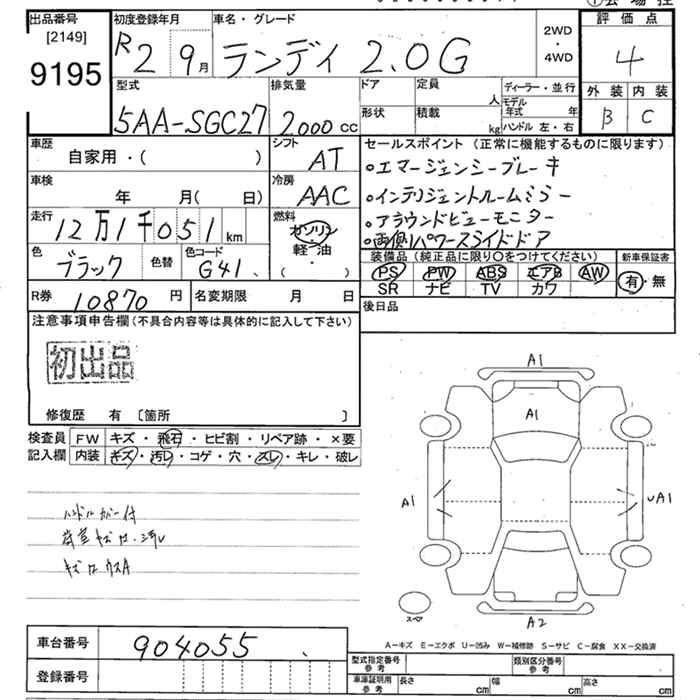 出品番号
[2149]
9195
初度登録年月
R 2 9月
車名・グレード
ランディ 2.0G
2WD
・
4WD
評価点
4
外装 内装
B C
型式
5AA-SGC27
排気量
2000 cc
ドア
形状
定員
人
積載
kg
ディーラー・並行
モデル
年式 年
ハンドル 左・右
車歴
自家用・( )
シフト
AT
車検
年 月( 日)
冷房
AAC
走行
12万1千051 km
燃料
ガソリン
軽・油
・
( )
色
ブラック
色替
色コード
G41
R券 10870 円
名変期限 月 日
セールスポイント(正常に機能するものに限ります)
・エマージェンシーブレーキ
・インテリジェントルームミラー
・アラウンドビューモニター
・両側パワースライドドア
装備品(純正品に限り○をつけてください)
PS PW ABS エアB AW
SR ナビ TV カワ
新車保証書
有・無
後日品
注意事項申告欄(不具合内容等は具体的に記入して下さい)
初出品
修復歴 有 〔箇所 〕
検査員
記入欄
FW キズ・飛石・ヒビ割・リペア跡・×要
内装 キズ・汚レ・コゲ・穴・スレ・キレ・破レ
ハンドルカバー付
荷室キズ
キズ
A1
A1
A1
A1
A2
スペア
A-キズ E-エクボ U-凹み W-補修跡 S-サビ C-腐食 XX-交換済
車台番号 904055
登録番号
型式指定番号
参考
類別区分番号
参考
車庫証明用
参考
長さ cm 幅 cm 高さ cm